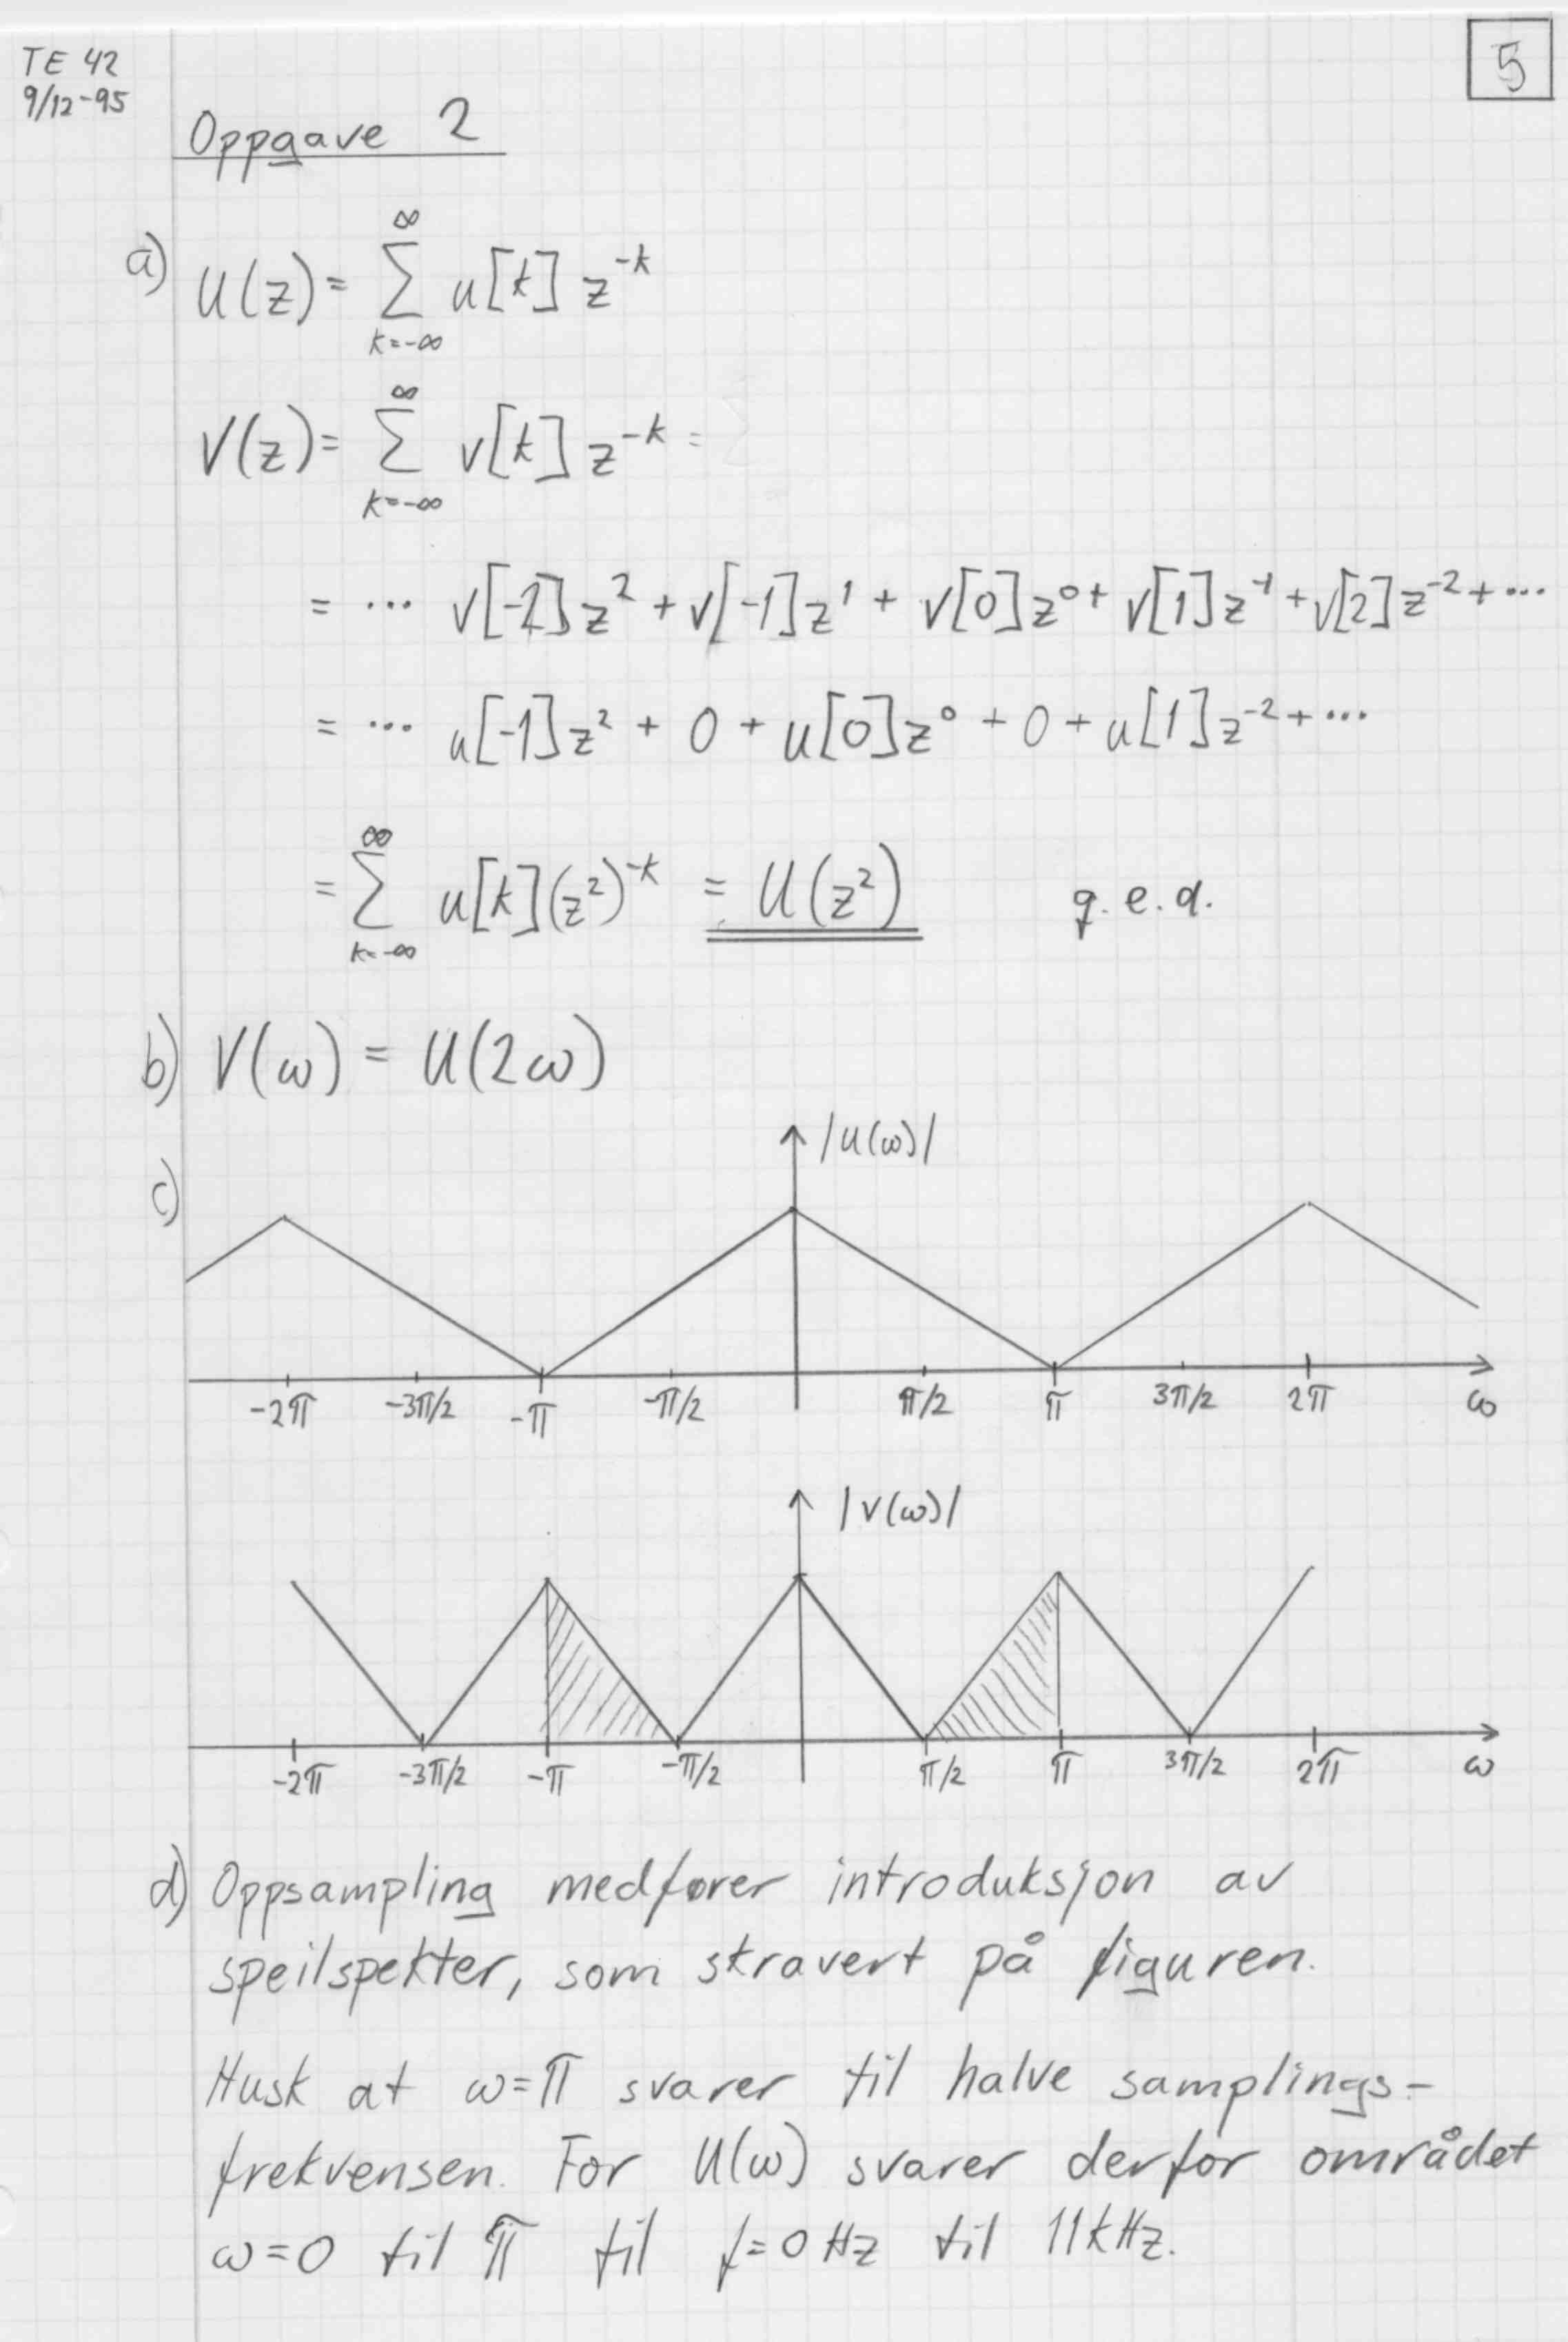 TE 42
9/12-95
5
Oppgave 2
a) U(z) = ∑_{k=-∞}^{∞} u[k] z^{-k}
V(z) = ∑_{k=-∞}^{∞} v[k] z^{-k} =
= ··· v[-2]z^2 + v[-1]z^1 + v[0]z^0 + v[1]z^{-1} + v[2]z^{-2} + ···
= ··· u[-1]z^2 + 0 + u[0]z^0 + 0 + u[1]z^{-2} + ···
= ∑_{k=-∞}^{∞} u[k](z^2)^{-k} = U(z^2) q.e.d.
b) V(ω) = U(2ω)
c)
|U(ω)|
-2π -3π/2 -π -π/2 π/2 π 3π/2 2π ω
|V(ω)|
-2π -3π/2 -π -π/2 π/2 π 3π/2 2π ω
d) Oppsampling medfører introduksjon av
speilspekter, som skravert på figuren.
Husk at ω=π svarer til halve samplings-
frekvensen. For U(ω) svarer derfor området
ω=0 til π til f=0 Hz til 11kHz.